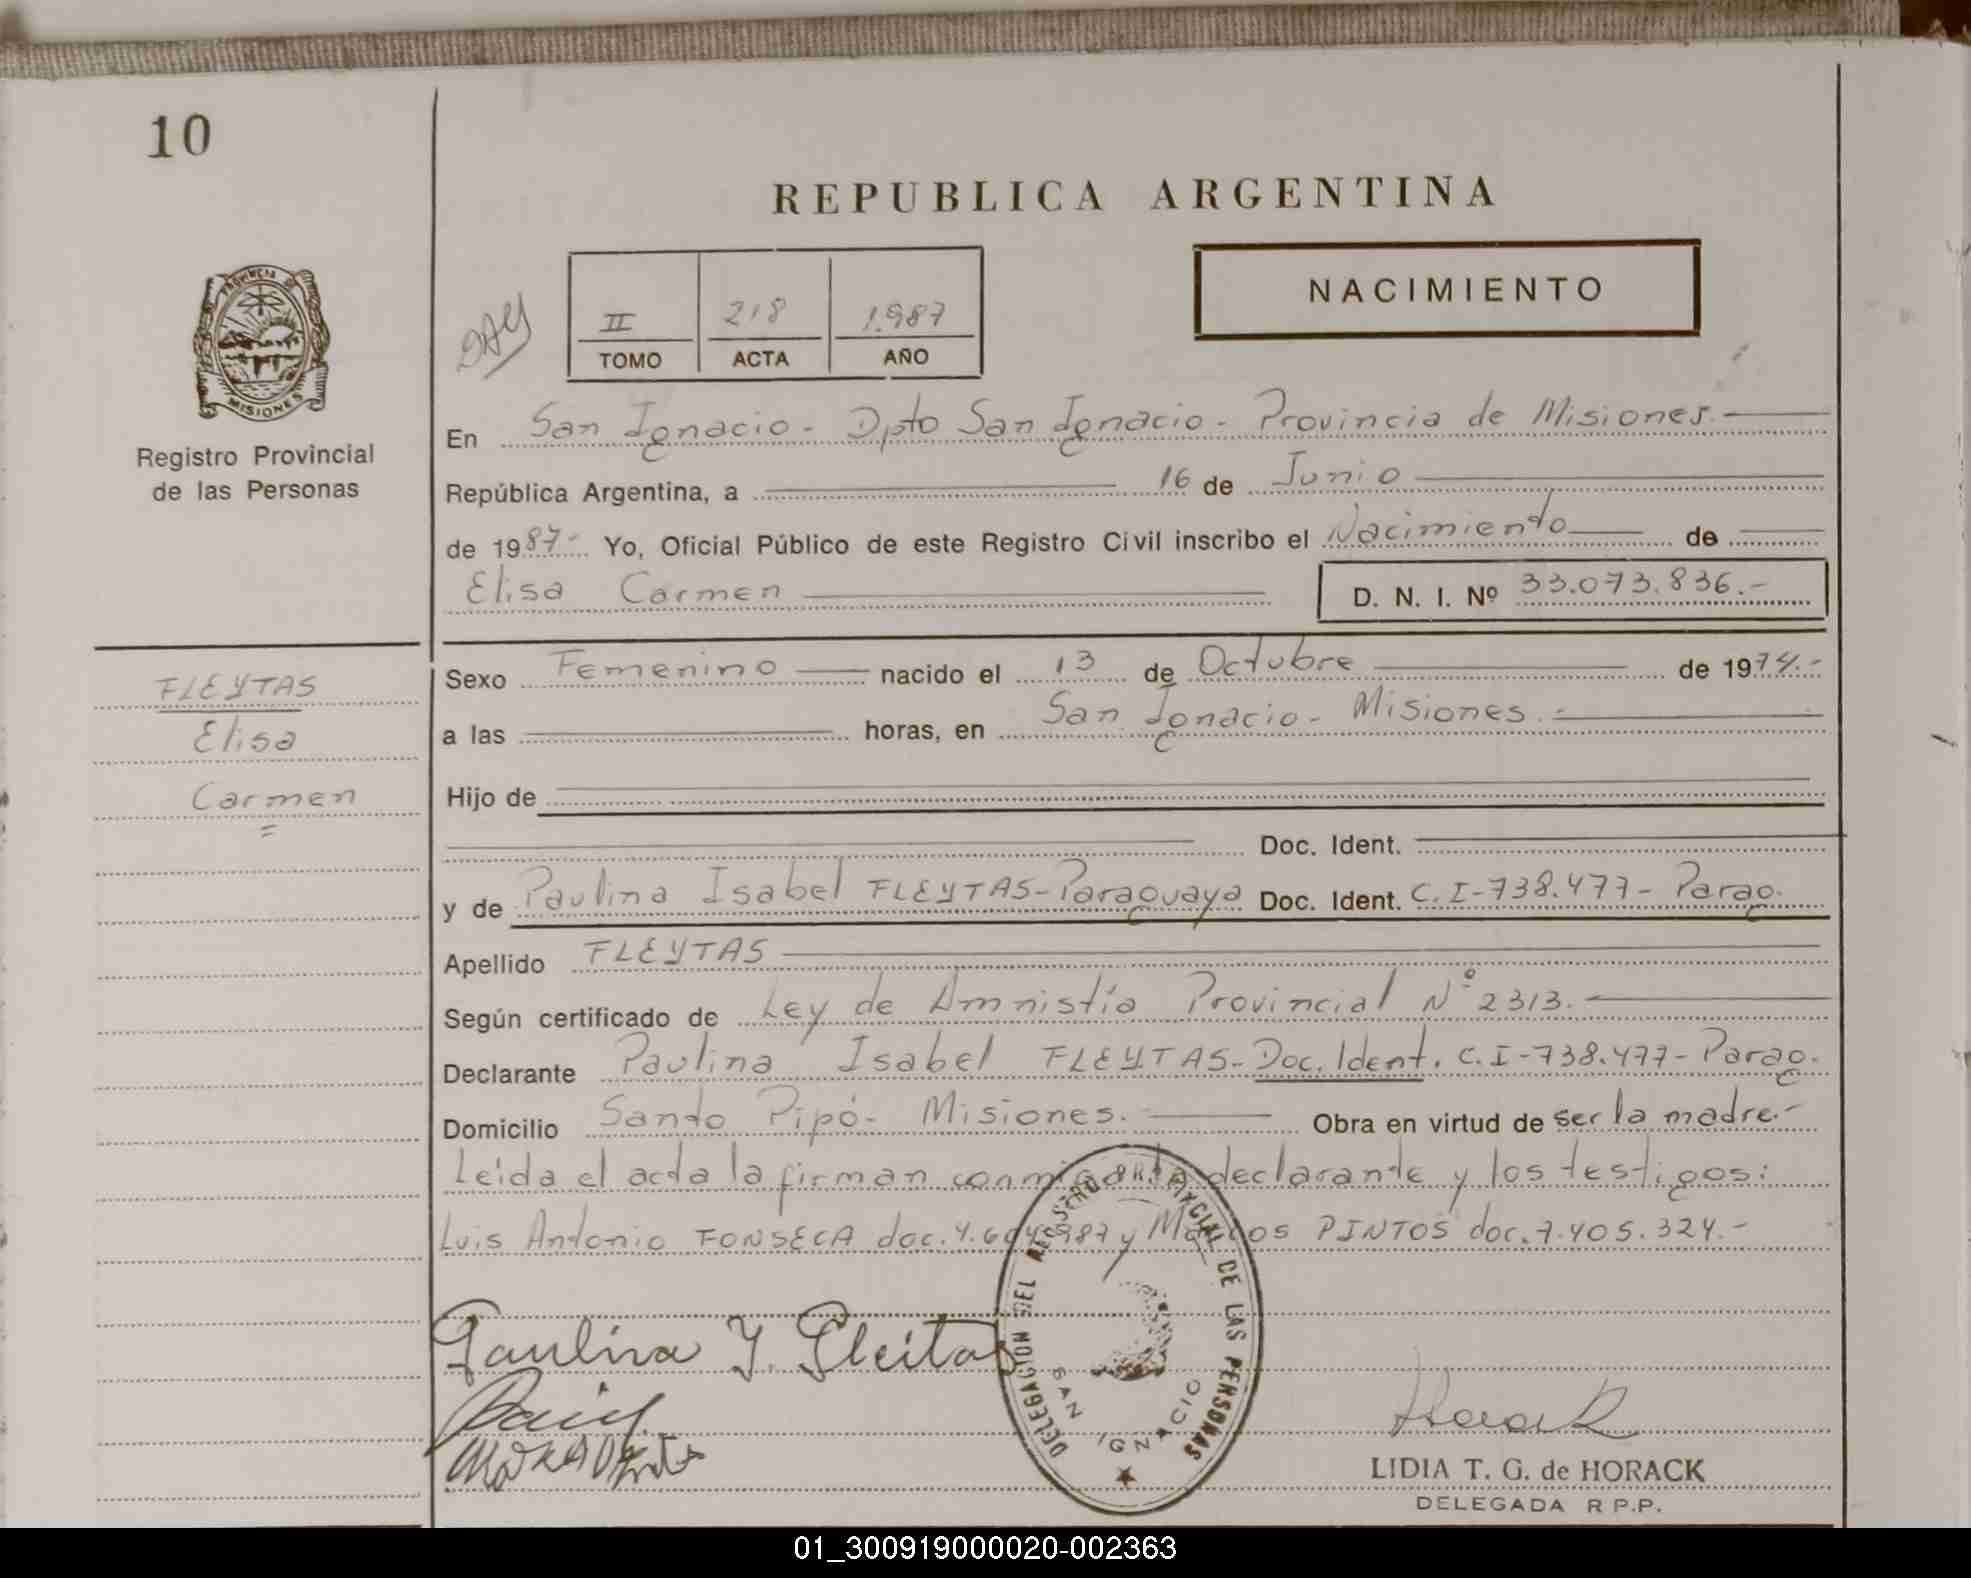 10
REPUBLICA ARGENTINA
NACIMIENTO
II 218 1.987
TOMO ACTA AÑO
PROVINCIA DE
MISIONES
Registro Provincial
de las Personas
En San Ignacio - Dpto San Ignacio - Provincia de Misiones.-
República Argentina, a 16 de Junio
de 1987- Yo, Oficial Público de este Registro Civil inscribo el Nacimiento de
Elisa Carmen D. N. I. Nº 33.073.836.-
FLEYTAS
Elisa
Carmen
Sexo Femenino nacido el 13 de Octubre de 1974.-
a las horas, en San Ignacio - Misiones.-
Hijo de
Doc. Ident.
y de Paulina Isabel FLEYTAS - Paraguaya Doc. Ident. C.I-738.477- Parag.
Apellido FLEYTAS
Según certificado de Ley de Amnistía Provincial Nº 2313.-
Declarante Paulina Isabel FLEYTAS- Doc. Ident. C.I-738.477- Parag.
Domicilio Santo Pipó - Misiones.- Obra en virtud de ser la madre.-
Leida el acta la firman conmigo la declarante y los testigos:
Luis Antonio FONSECA doc. 987 y Marcos PINTOS doc. 7.405.324.-
Paulina Y. Fleitas
DELEGACION DEL REGISTRO PROVINCIAL DE LAS PERSONAS
SAN IGNACIO
Horack
LIDIA T. G. de HORACK
DELEGADA R P.P.
01_300919000020-002363